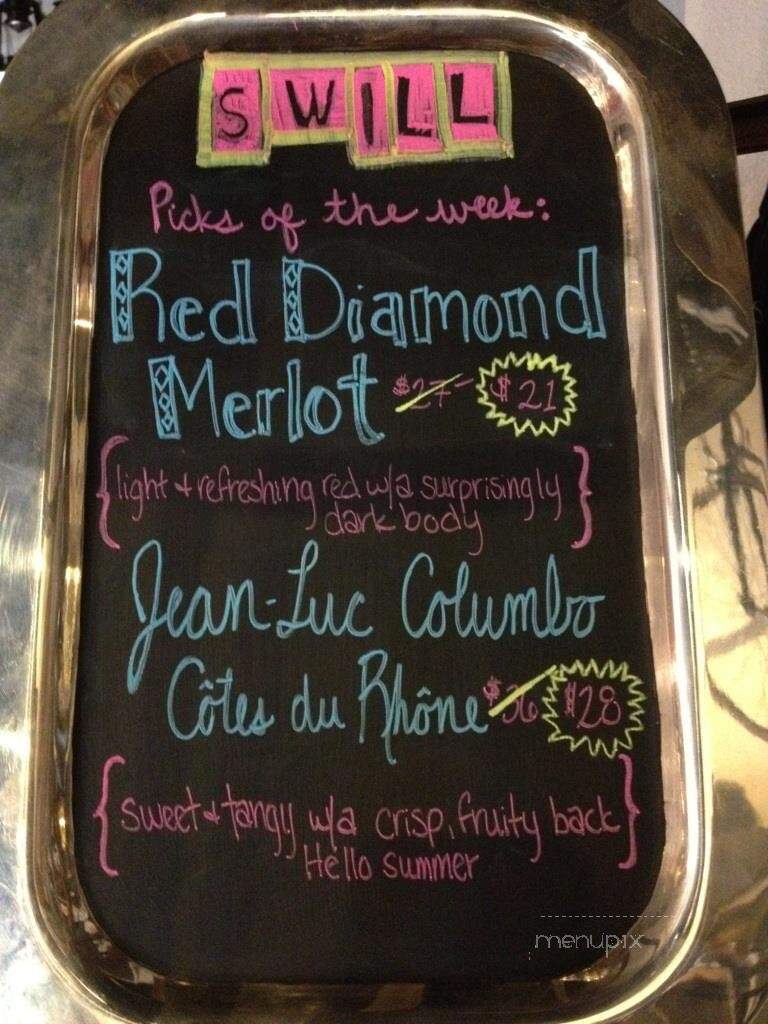 SWILL
Picks of the week:
Red Diamond
Merlot $27 $21
{light & refreshing red w/a surprisingly
dark body}
Jean-Luc Columbo
Côtes du Rhône $36 $28
{sweet & tangy w/a crisp, fruity back
Hello summer}
menupix